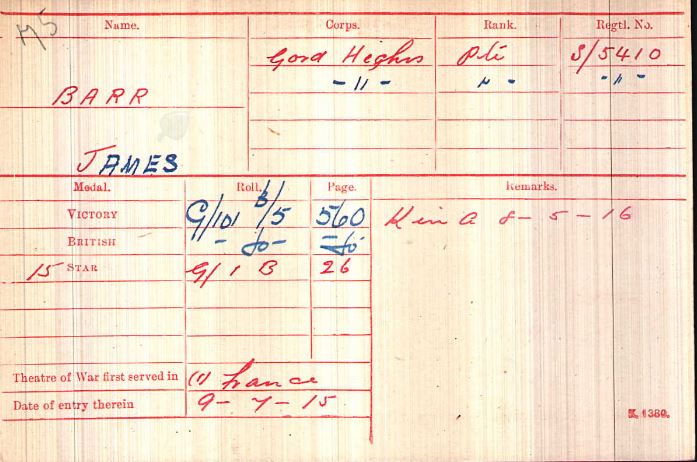 H5
Name. Corps. Rank. Regtl. No.
Gord Highrs Pte S/5410
- 11 - " - - " -
BARR
JAMES
Medal. Roll. Page. Remarks.
VICTORY G/101 B/5 560 K in A 8 - 5 - 16
BRITISH - do - = do
15 STAR G/1 B 26
Theatre of War first served in (1) France
Date of entry therein 9 - 7 - 15
K. 1380.